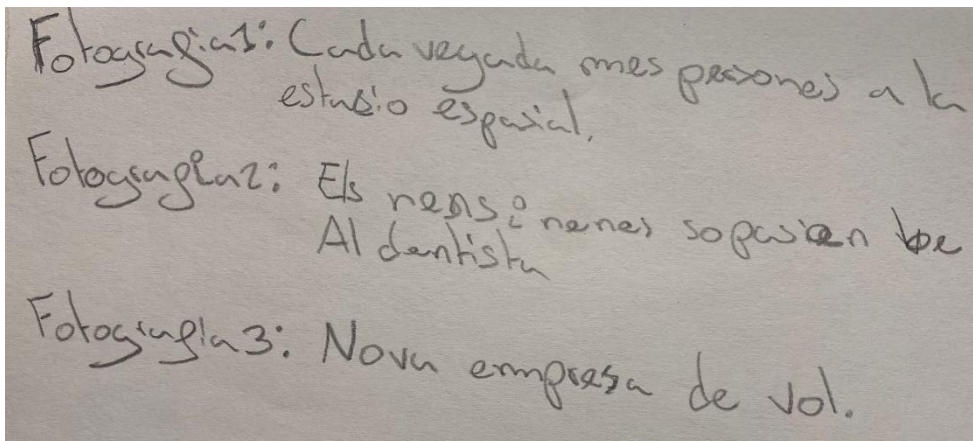 Fotografia1: Cada vegada mes persones a la
estasio espasial.
Fotografia2: Els nens i nenes so pasien be
Al dentista
Fotografia3: Nova empresa de vol.